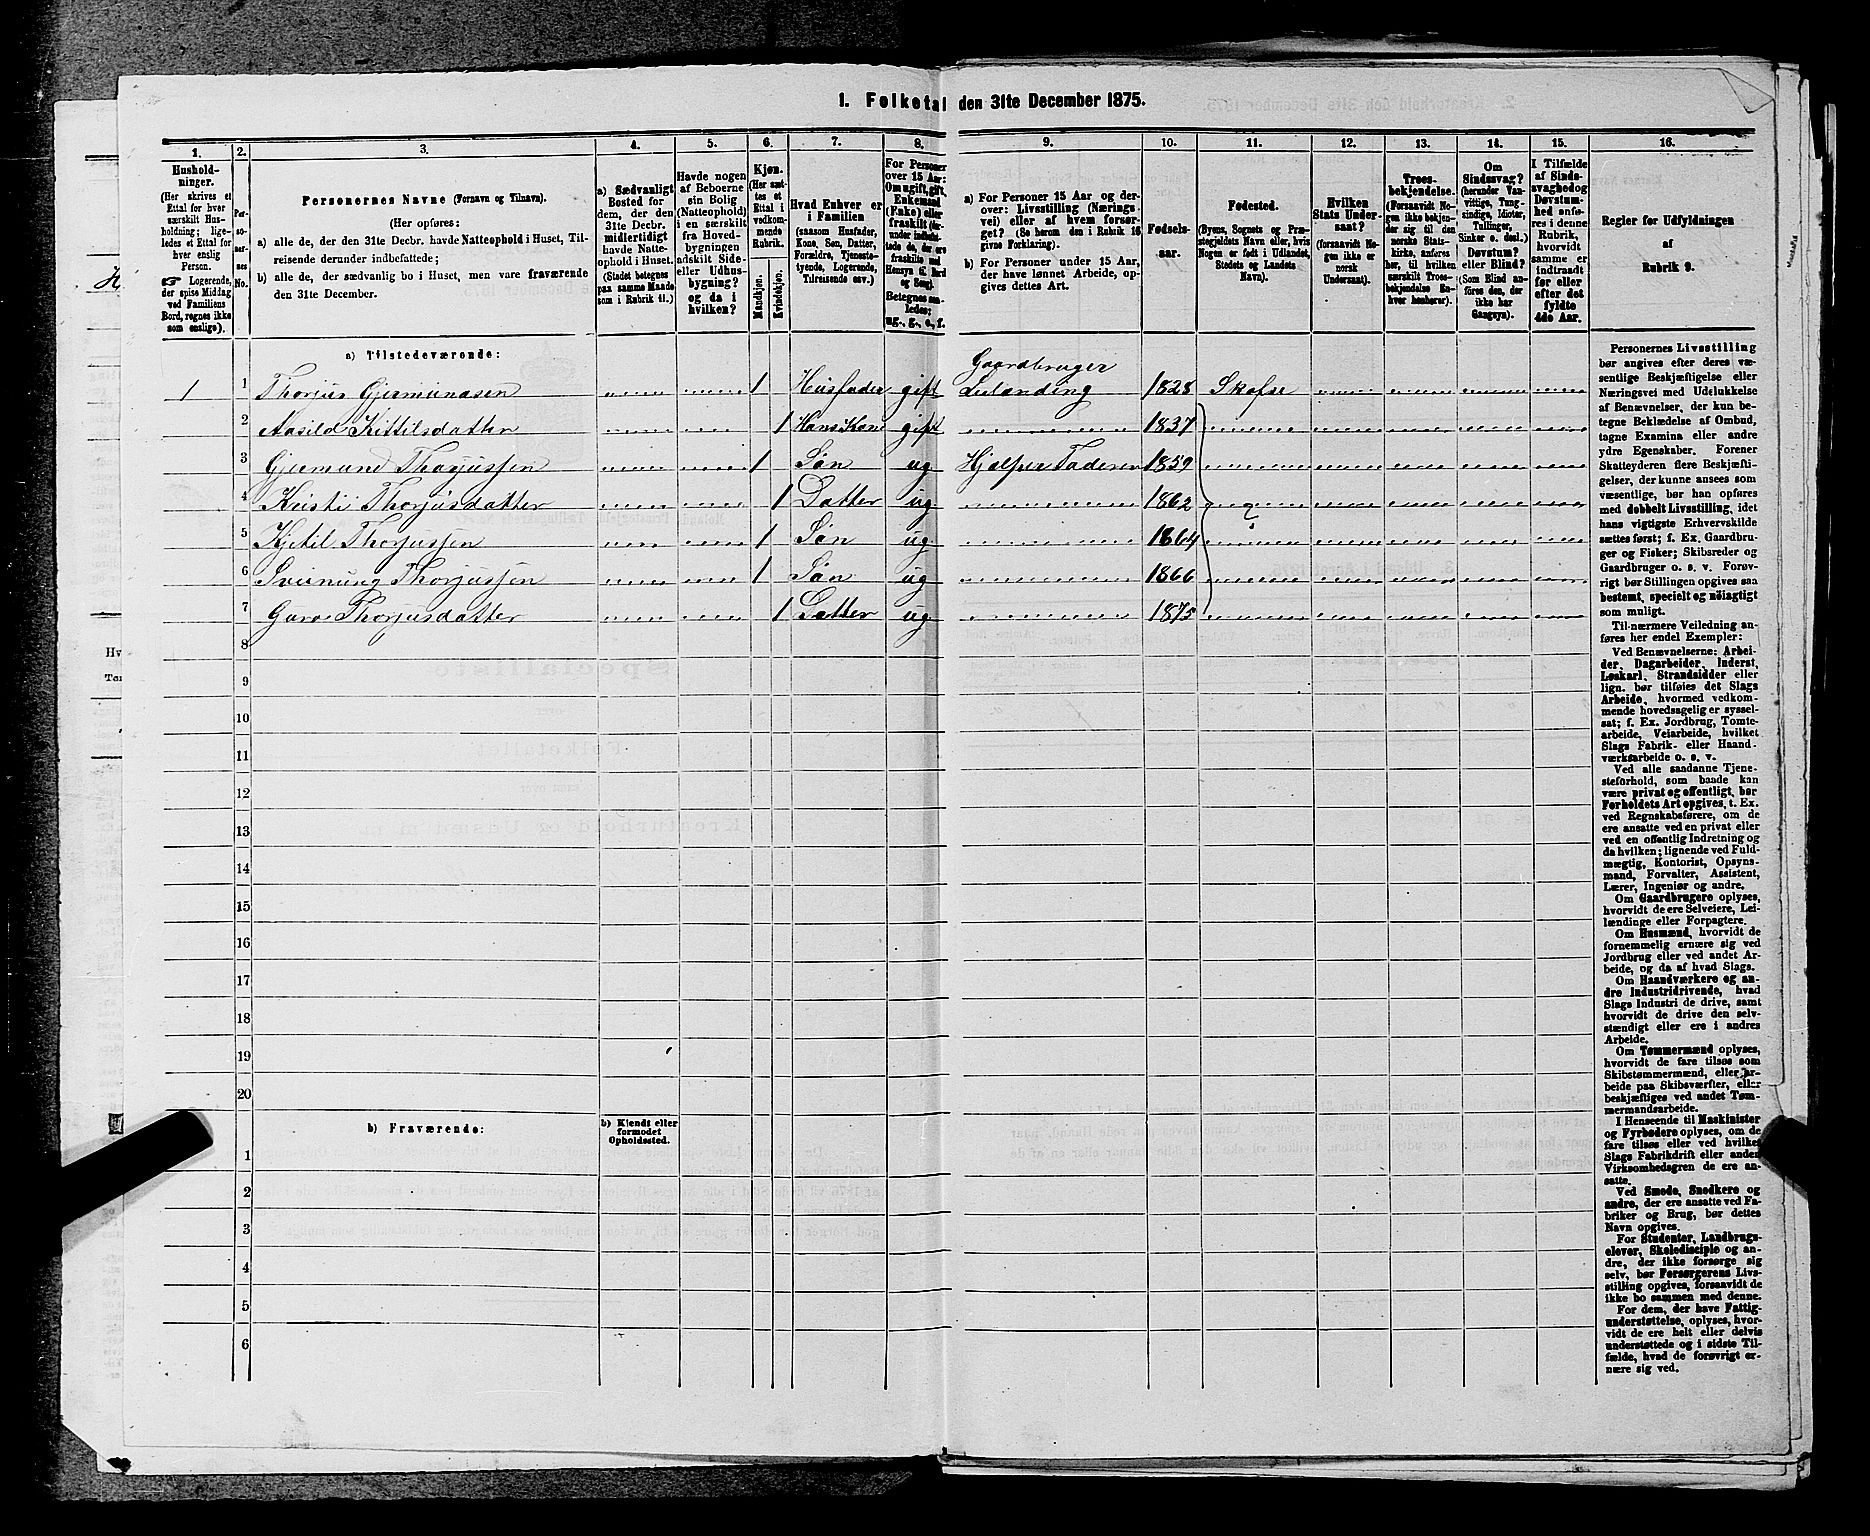 1. Folketal den 31te December 1875.
1. 2. 3. 4. 5. 6. 7. 8. 9. 10. 11. 12. 13. 14. 15. 16.
Hushold-
ninger.
(Her skrives et
Ettal for hver
særskilt Hus-
holdning; lige-
ledes et Ettal for
hver enslig
Person.
☛ Logerende,
der spise Middag
ved Familiens
Bord, regnes ikke
som enslige).
Per-
so-
ner-
nes
No.
Personernes Navne (Fornavn og Tilnavn).
(Her opføres:
a) alle de, der den 31te Decbr. havde Natteophold i Huset, Til-
reisende derunder indbefattede;
b) alle de, der sædvanlig bo i Huset, men vare fraværende
den 31te December.
a) Sædvanligt
Bosted for
dem, der den
31te Decbr.
midlertidigt
havde Natte-
ophold i Huset.
(Stedet betegnes
paa samme Maade
som i Rubrik 11.)
Havde nogen
af Beboerne
sin Bolig
(Natteophold)
i en særskilt
fra Hoved-
bygningen
adskilt Side-
eller Udhus-
bygning?
og da i
hvilken?
Kjøn.
(Her sæt-
tes et
Ettal i
vedkom-
mende
Rubrik.
Mandkjøn.
Kvindekjøn.
Hvad Enhver er
i Familien
(saasom Husfader,
Kone, Søn, Datter,
Forældre, Tjeneste-
tyende, Logerende,
Tilreisende osv.)
For Personer
over 15 Aar:
Om ugift, gift,
Enkemand
(Enke) eller
fraskilt (der-
under indbefat-
tede de, der ere
fraskilte med
Hensyn til Bord
og Seng).
Betegnes saa-
ledes:
ug., g., e., f.
a) For Personer 15 Aar og der-
over: Livsstilling (Nærings-
vei) eller af hvem forsør-
get? (Se herom den i Rubrik 16
givne Forklaring).
b) For Personer under 15 Aar,
der have lønnet Arbeide, op-
gives dettes Art.
Fødsels-
aar.
Fødested.
(Byens, Sognets og Præ-
stegjeldets Navn eller, hvis
Nogen er født i Udlandet,
Stedets og Landets
Navn).
Hvilken
Stats Under-
saat?
(forsaavidt No-
gen ikke er
norsk
Undersaat).
Troes-
bekjendelse.
(Forsaavidt No-
gen ikke bekjen-
der sig til den
norske Stats-
kirke, anføres
her, til hvilken
særskilt Troes-
bekjendelse En-
hver henhører).
Om
Sindssvag?
(herunder Van-
vittige, Tung-
sindige, Idioter,
Tullinger,
Sinker o. desl.)
Døvstum?
eller Blind?
(Som Blind an-
føres den, der
ikke har
Gangsyn).
I Tilfælde
af Sinds-
svaghed og
Døvstum-
hed anfø-
res i denne
Rubrik,
hvorvidt
samme er
indtraadt
før eller
efter det
fyldte
4de Aar.
Regler for Udfyldningen
af
Rubrik 9.
a) Tilstedeværende:
Gaardbruger
1 1 Thorjus Gjermundsen 1 Husfader gift Leilænding 1828 Skafse
2 Aasild Kittilsdatter 1 Hans Kone gift 1837
3 Gjermund Thorjussen 1 Søn ug Hjælper Faderen 1859
4 Kristi Thorjusdatter 1 Datter ug 1862
5 Kjetil Thorjussen 1 Søn ug 1864
6 Sveinung Thorjussen 1 Søn ug 1866
7 Guro Thorjusdatter 1 Datter ug 1875
8
9
10
11
12
13
14
15
16
17
18
19
20
b) Fraværende:
b) Kjendt eller
formodet
Opholdssted.
1
2
3
4
5
6
Personernes Livsstilling
bør angives efter deres væ-
sentlige Beskjæftigelse eller
Næringsvei med Udelukkelse
af Benævnelser, der kun be-
tegne Beklædelse af Ombud,
tagne Examina eller andre
ydre Egenskaber. Forener
Skatteyderen flere Beskjæfti-
gelser, der kunne ansees som
væsentlige, bør han opføres
med dobbelt Livsstilling, idet
hans vigtigste Erhvervskilde
sættes først; f. Ex. Gaardbru-
ger og Fisker; Skibsreder og
Gaardbruger o. s. v. Forøv-
rigt bør Stillingen opgives saa
bestemt, specielt og nøiagtigt
som muligt.
Til nærmere Veiledning an-
føres her endel Exempler:
Ved Benævnelserne: Arbei-
der, Dagarbeider, Inderst,
Løskarl, Strandsidder eller
lign. bør tilføies det Slags
Arbeide, hvormed vedkom-
mende hovedsagelig er syssel-
sat; f. Ex. Jordbrug, Tomte-
arbeide, Veiarbeide, hvilket
Slags Fabrik- eller Haand-
værksarbeide o. s. v.
Ved alle saadanne Tjene-
steforhold, som baade kan
være privat og offentligt, bør
Forholdets Art opgives, t. Ex.
ved Regnskabsførere, om de
ere ansatte ved en privat eller
ved en offentlig Indretning og
da hvilken; lignende ved Fuld-
mægtig, Kontorist, Opsyns-
mand, Forvalter, Assistent,
Lærer, Ingeniør og andre.
Om Gaardbrugere oplyses,
hvorvidt de ere Selveiere, Lei-
lændinge eller Forpagtere.
Om Husmænd, hvorvidt de
fornemmelig ernære sig ved
Jordbrug eller ved andet Ar-
beide, og da af hvad Slags.
Om Haandværkere og an-
dre Industridrivende, hvad
Slags Industri de drive, samt
hvorvidt de drive den selv-
stændigt eller ere i andres
Arbeide.
Om Tømmermænd oplyses,
hvorvidt de fare tilsøs som
Skibstømmermænd, eller ar-
beide paa Skibsværfter, eller
beskjæftiges ved andet Tøm-
mermandsarbeide.
I Henseende til Maskinister
og Fyrbødere oplyses, om de
fare tilsøs eller ved hvilket
Slags Fabrikdrift eller anden
Virksomhedsgren de ere an-
satte.
Ved Smede, Snedkere og
andre, der ere ansatte ved Fa-
briker og Brug, bør dettes
Navn opgives.
For Studenter, Landbrugs-
elever, Skoledisciple og an-
dre, der ikke forsørge sig
selv, bør Forsørgerens Livs-
stilling opgives, forsaavidt de
ikke bo sammen med denne.
For dem, der have Fattig-
understøttelse, oplyses, hvor-
vidt de ere helt eller delvis
understøttede og i sidste Til-
fælde, hvad de forøvrigt er-
nære sig ved.